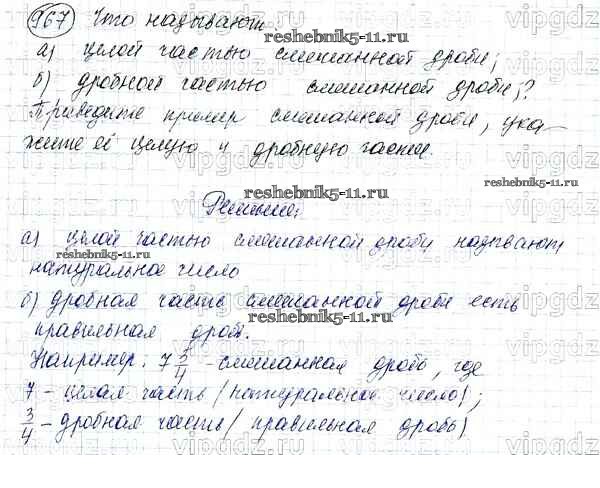 967 Что называют
а) целой частью смешанной дроби;
б) дробной частью смешанной дроби;?
Приведите пример смешанной дроби, ука-
жите её целую и дробную части.
reshebnik5-11.ru
reshebnik5-11.ru
Решение:
а) целой частью смешанной дроби называют
reshebnik5-11.ru
натуральное число
б) дробная часть смешанной дроби есть
reshebnik5-11.ru
правильная дробь.
Например: 7 3/4 - смешанная дробь, где
7 - целая часть (натуральное число);
3/4 - дробная часть (правильная дробь)
reshebnik5-11.ru
vipgdz